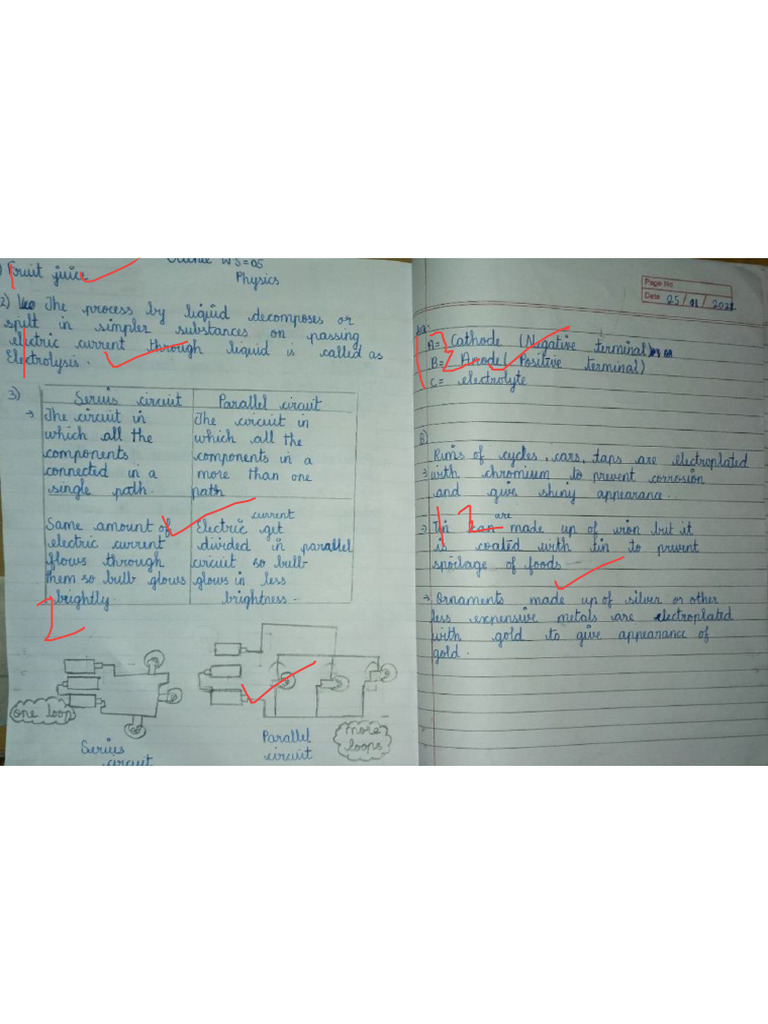 Science WS=05
Physics
1) Fruit juice
2) The process by liquid decomposes or
spilt in simpler substances on passing
electric current through liquid is called as
Electrolysis.
3)
Series circuit Parallel circuit
→ The circuit in
which all the
components
connected in a
single path.
The circuit in
which all the
components in a
more than one
path
Same amount of
electric current
flows through
them so bulb glows
brightly.
Electric current get
divided in parallel
circuit so bulb
glows in less
brightness -
2
One loop
Series
circuit
Parallel
circuit
More
loops
Page No.
Date 25/01/
A= Cathode (Negative terminal)
B= Anode (Positive terminal)
C= electrolyte
B)
Rims of cycles, cars, taps are electroplated
→ with chromium to prevent corrosion
and give shiny appearance.
→ Tin can are made up of iron but it
is coated with tin to prevent
spoilage of foods -
→ Ornaments made up of silver or other
less expensive metals are electroplated
with gold to give appearance of
gold.